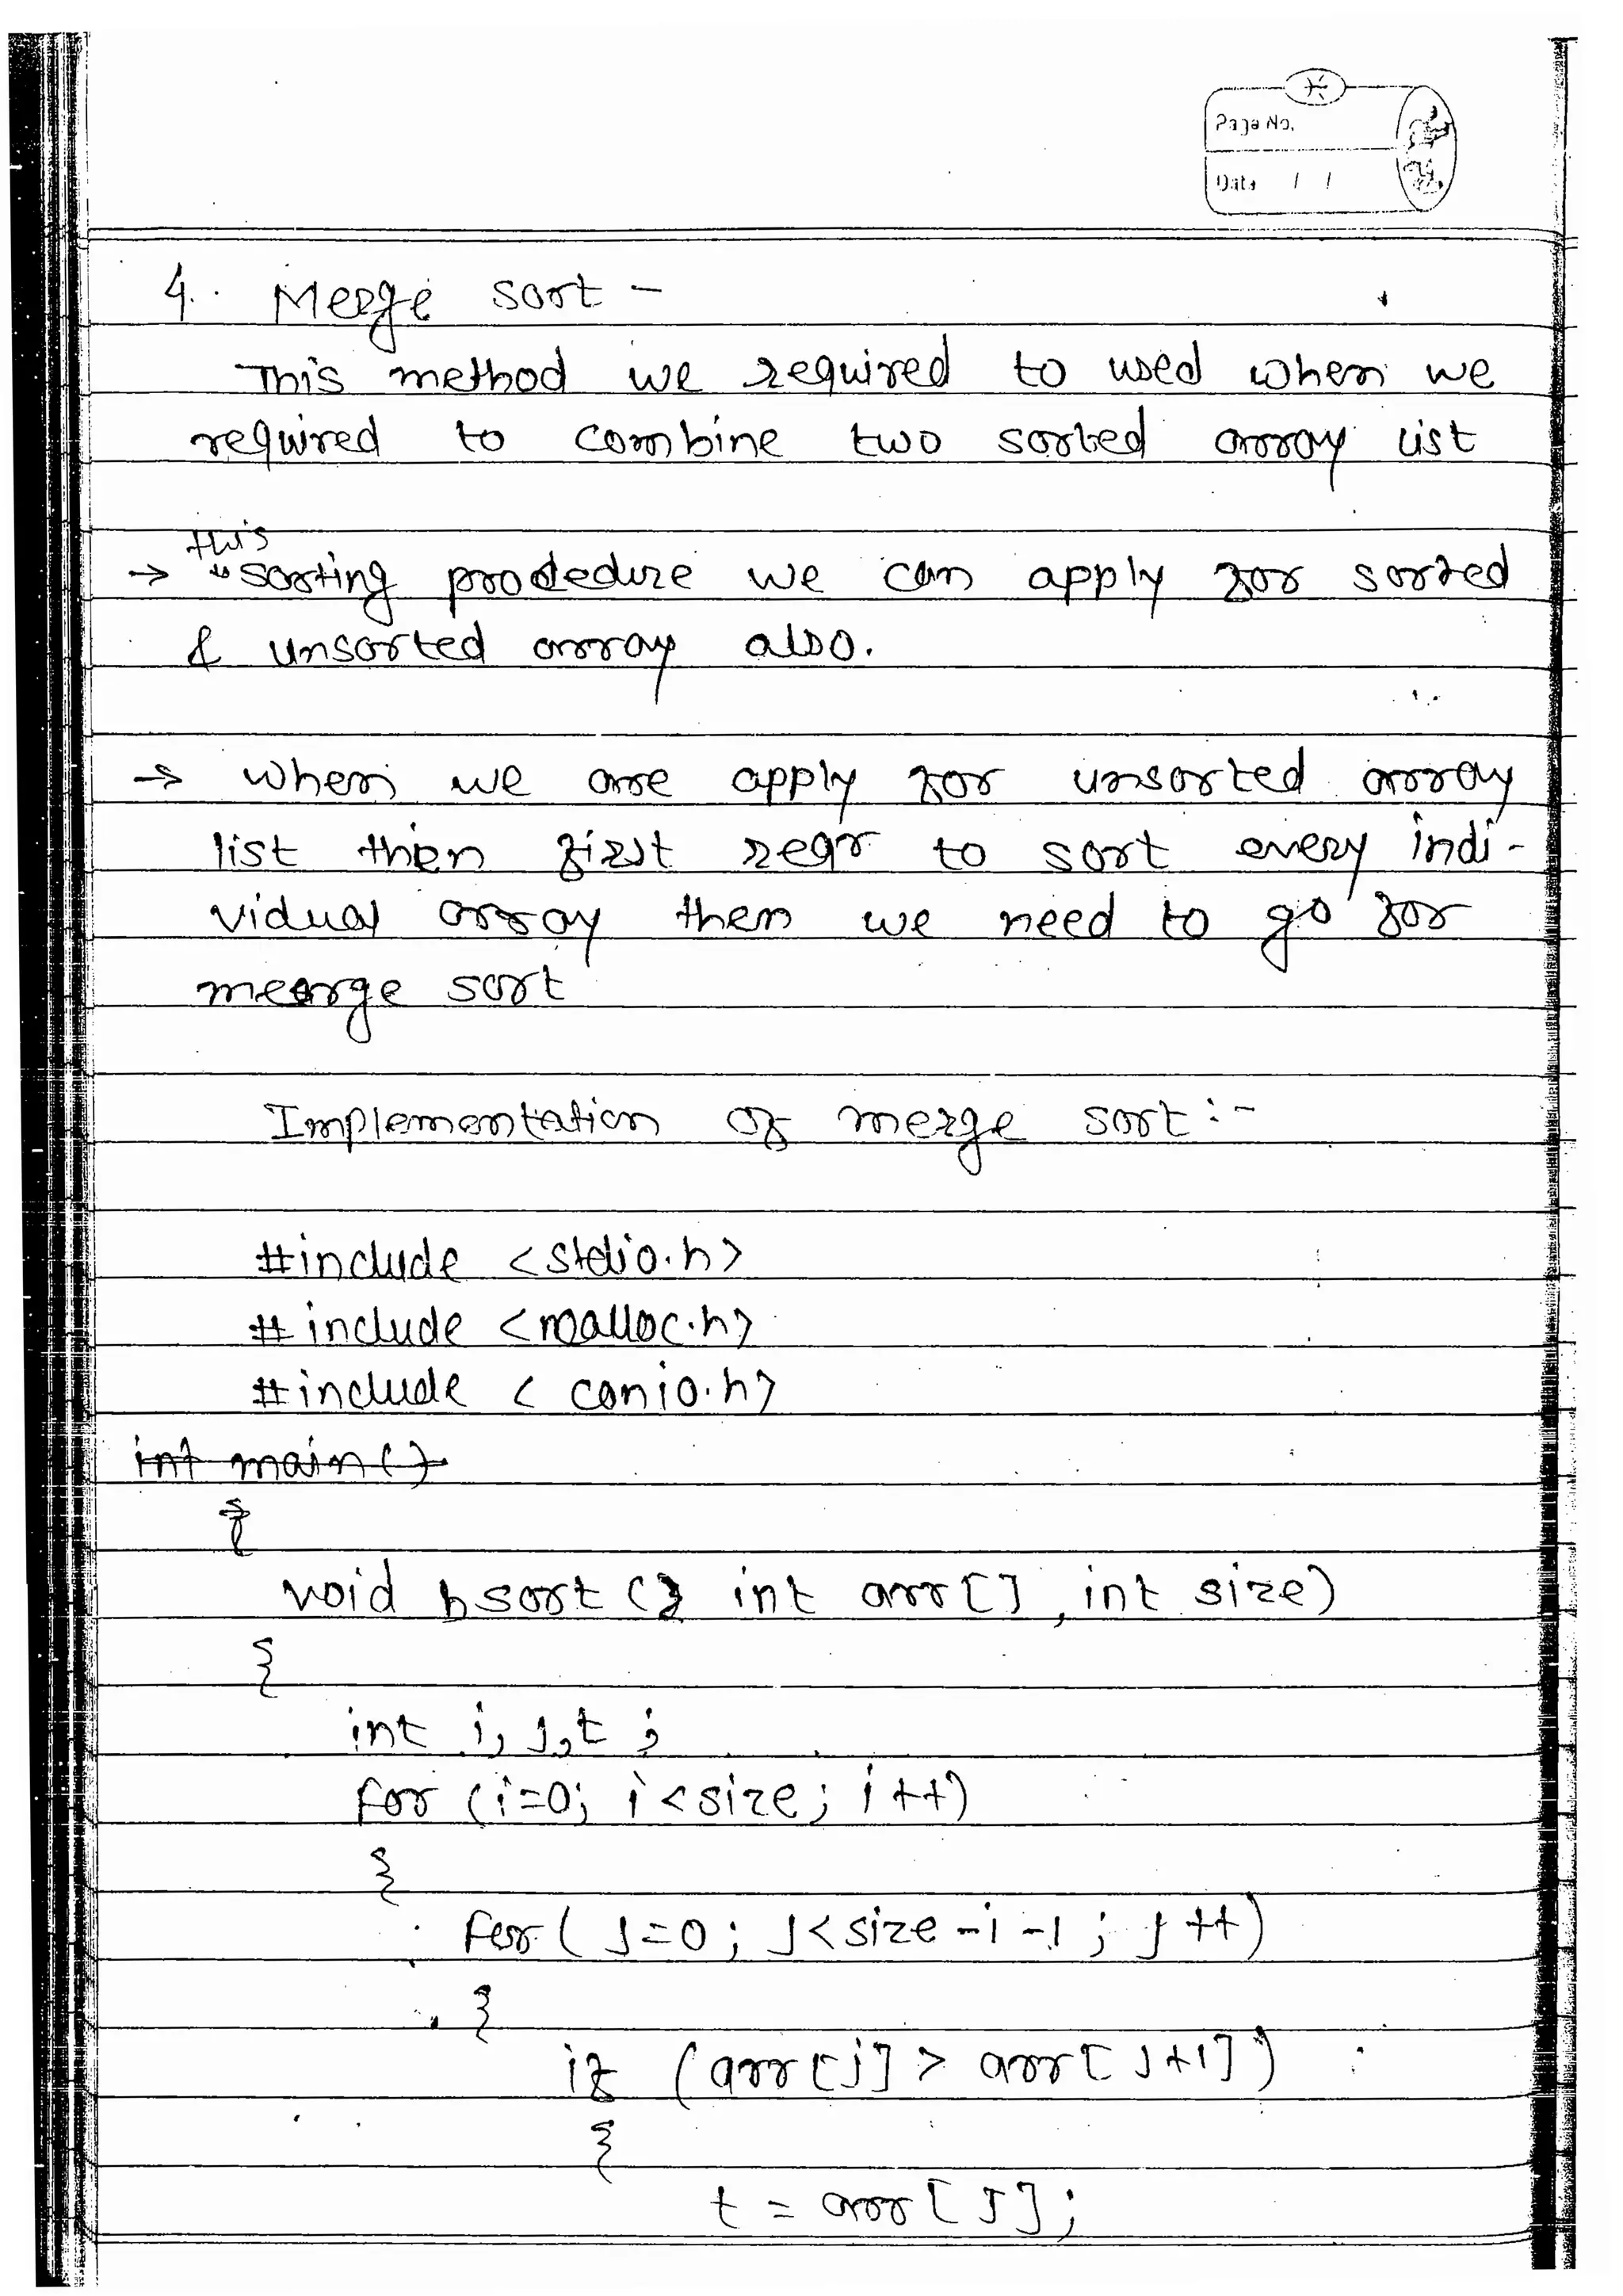 Page No.
Date / /
4. Merge sort -
This method we required to used when we
required to combine two sorted array list
this
→ sorting prodedure we can apply for sorted
& unsorted array also.
→ when we are apply for unsorted array
list then first reqr to sort every indi-
vidual array then we need to go for
mearge sort
Implementation of merge sort :-
#include <stdio.h>
# include <malloc.h>
#include < conio.h>
int main()
{
void bsort ( int arr[] , int size)
{
int i, j, t ;
for (i=0; i<size; i++)
{
for ( j=0 ; j<size -i -1 ; j ++)
{
if (arr[j] > arr[ j+1])
{
t = arr[ j];